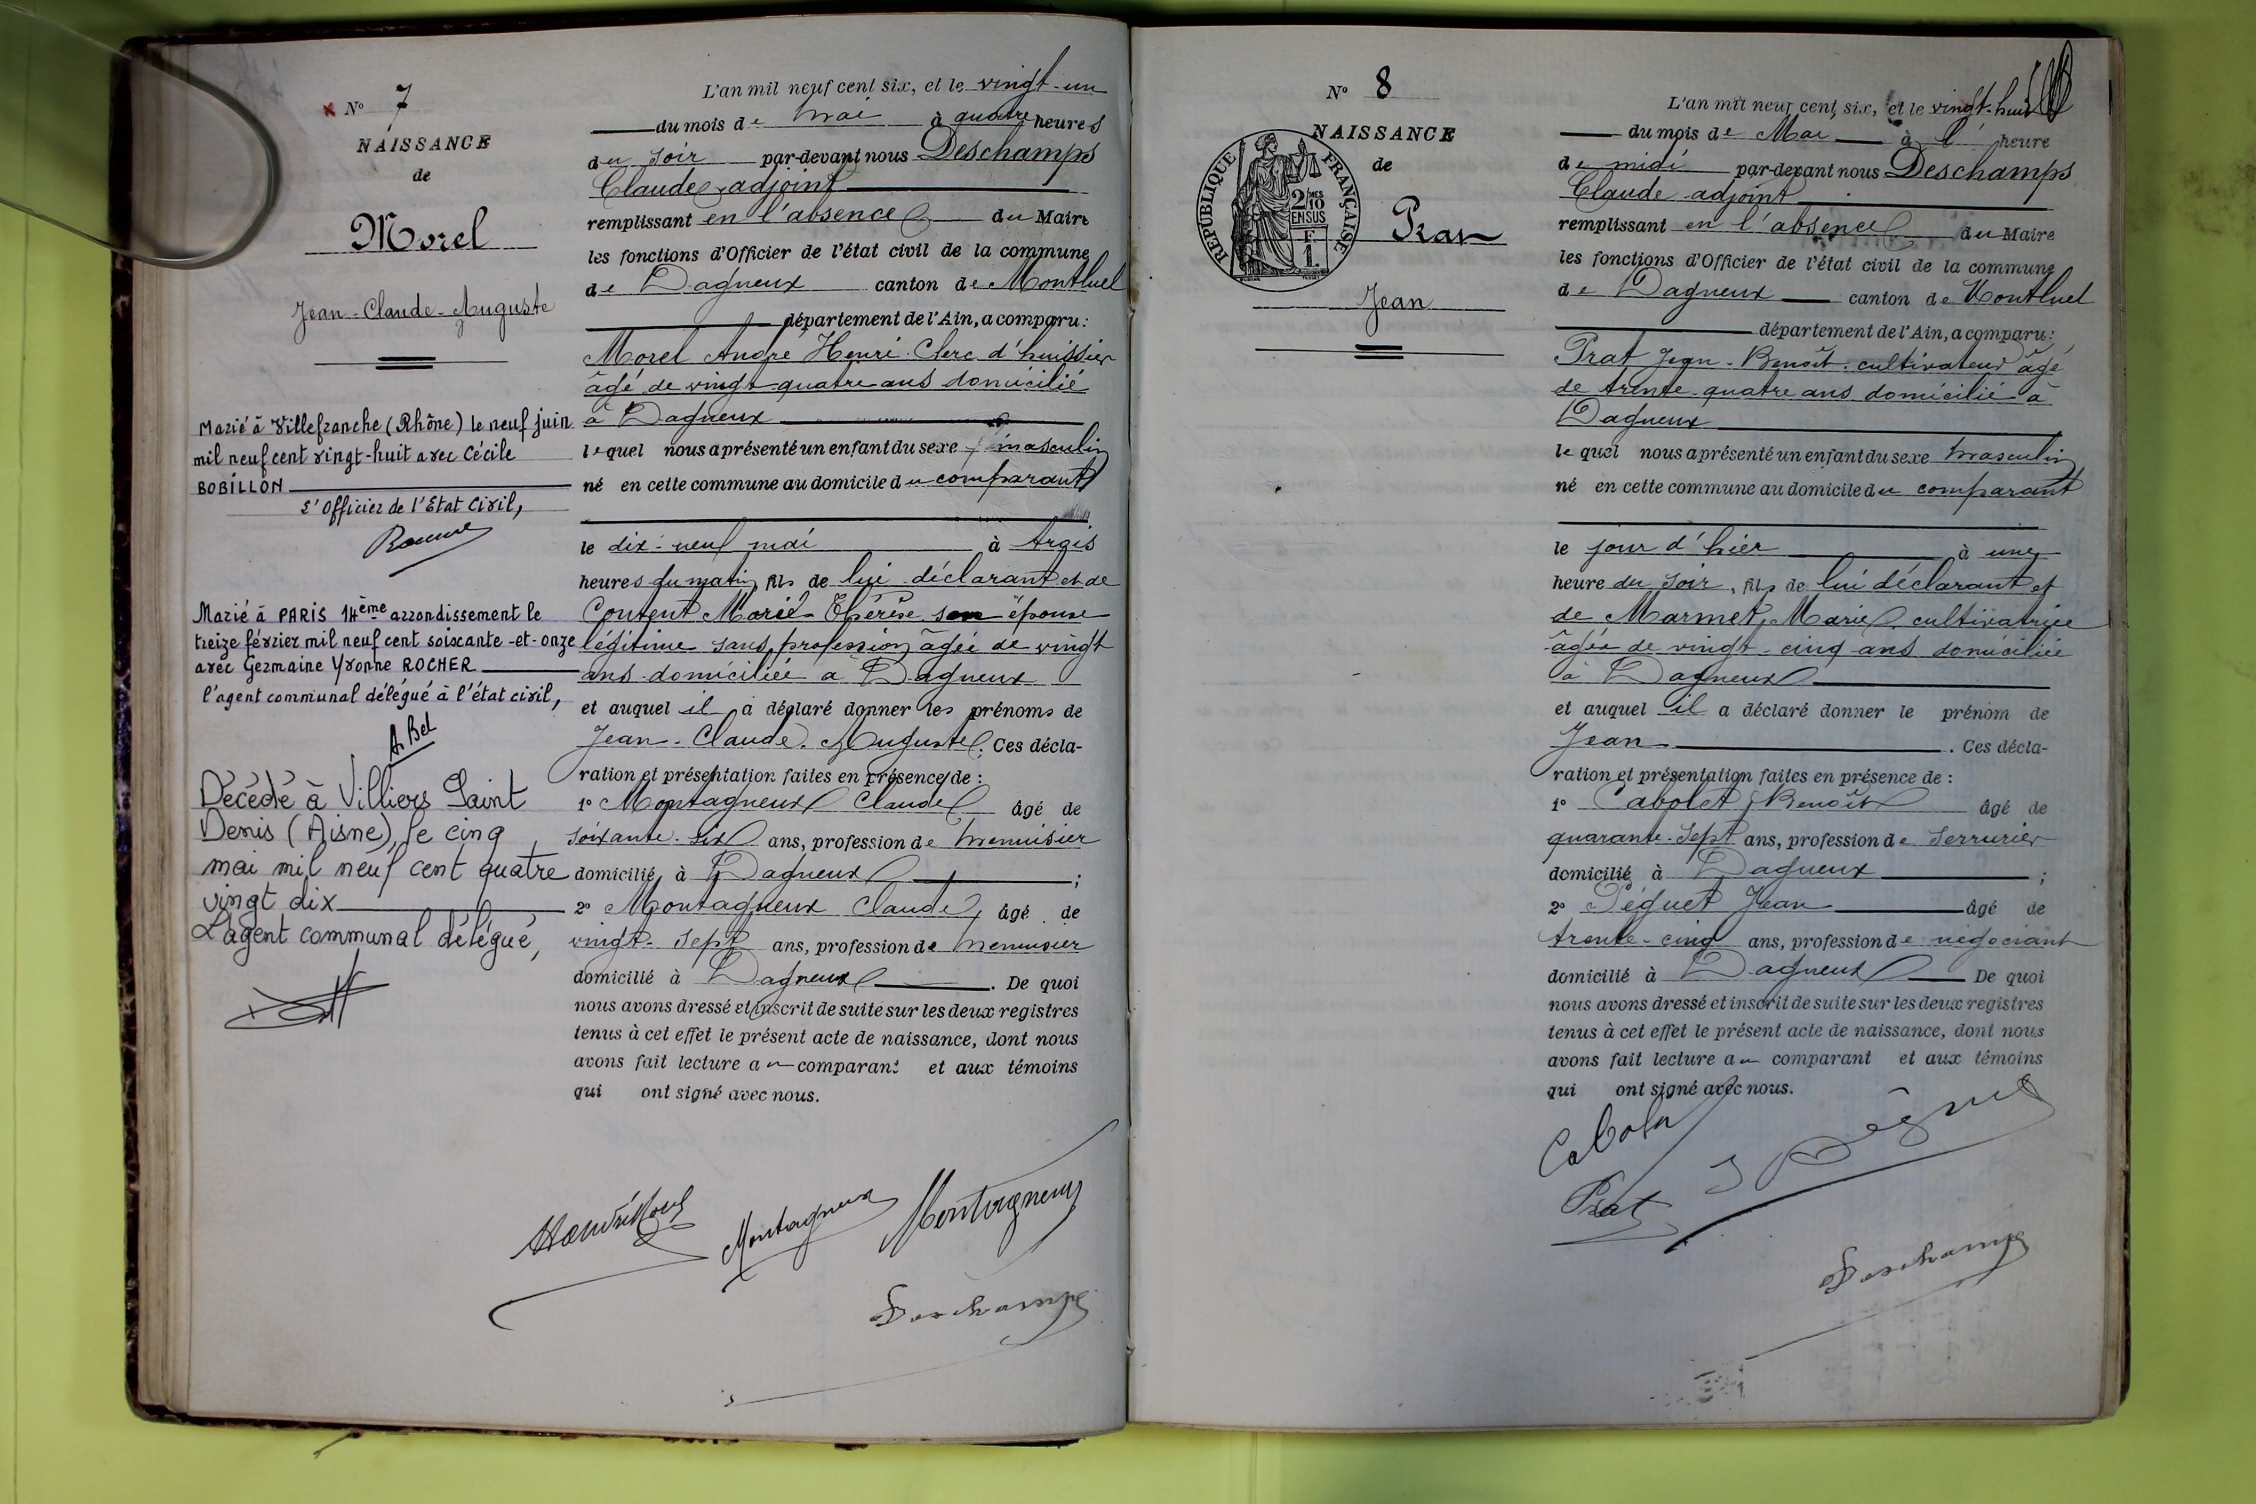 N° 7
NAISSANCE
de
Morel
Jean-Claude-Auguste
Marié à Villefranche (Rhône) le neuf juin
mil neuf cent vingt-huit avec Cécile
BOBILLON
L'Officier de l'Etat Civil,
Marié à PARIS 14ème arrondissement le
treize février mil neuf cent soixante-et-onze
avec Germaine Yvonne ROCHER
l'agent communal délégué à l'état civil,
A. Bel
Décédé à Villiers Saint
Denis (Aisne), le cinq
mai mil neuf cent quatre
vingt dix
L'agent communal délégué,
L'an mil neuf cent six, et le vingt-un
du mois de mai à quatre heures
du soir par-devant nous Deschamps
Claude, adjoint
remplissant en l'absence du Maire
les fonctions d'Officier de l'état civil de la commune
de Dagneux canton de Montluel
département de l'Ain, a comparu :
Morel André Henri Clerc d'huissier
âgé de vingt-quatre ans domicilié
à Dagneux
lequel nous a présenté un enfant du sexe masculin
né en cette commune au domicile du comparant
le dix-neuf mai à trois
heures du matin, fils de lui déclarant et de
Content Marie-Thérèse son épouse
légitime sans profession âgée de vingt
ans domiciliée à Dagneux
et auquel il a déclaré donner les prénoms de
Jean-Claude-Auguste. Ces décla-
ration et présentation faites en présence de :
1° Montagneux Claude âgé de
soixante-six ans, profession de menuisier
domicilié à Dagneux ;
2° Montagneux Claude, âgé de
vingt-sept ans, profession de menuisier
domicilié à Dagneux. De quoi
nous avons dressé et inscrit de suite sur les deux registres
tenus à cet effet le présent acte de naissance, dont nous
avons fait lecture au comparant et aux témoins
qui ont signé avec nous.
Montagneux Montagneux
Deschamps
N° 8
NAISSANCE
de
RÉPUBLIQUE FRANÇAISE
2/10
EN SUS
F.
1.
Prat
Jean
L'an mil neuf cent six, et le vingt-huit
du mois de Mai à l' heure
de midi par-devant nous Deschamps
Claude adjoint
remplissant en l'absence du Maire
les fonctions d'Officier de l'état civil de la commune
de Dagneux canton de Montluel
département de l'Ain, a comparu :
Prat Jean-Benoît cultivateur âgé
de trente-quatre ans domicilié à
Dagneux
lequel nous a présenté un enfant du sexe masculin
né en cette commune au domicile du comparant
le jour d'hier à une
heure du soir, fils de lui déclarant et
de Marmet Marie, cultivatrice
âgée de vingt-cinq ans domiciliée
à Dagneux
et auquel il a déclaré donner le prénom de
Jean. Ces décla-
ration et présentation faites en présence de :
1° Cabolet Benoît âgé de
quarante-sept ans, profession de serrurier
domicilié à Dagneux ;
2° Péguet Jean âgé de
trente-cinq ans, profession de négociant
domicilié à Dagneux De quoi
nous avons dressé et inscrit de suite sur les deux registres
tenus à cet effet le présent acte de naissance, dont nous
avons fait lecture au comparant et aux témoins
qui ont signé avec nous.
Prat
Deschamps